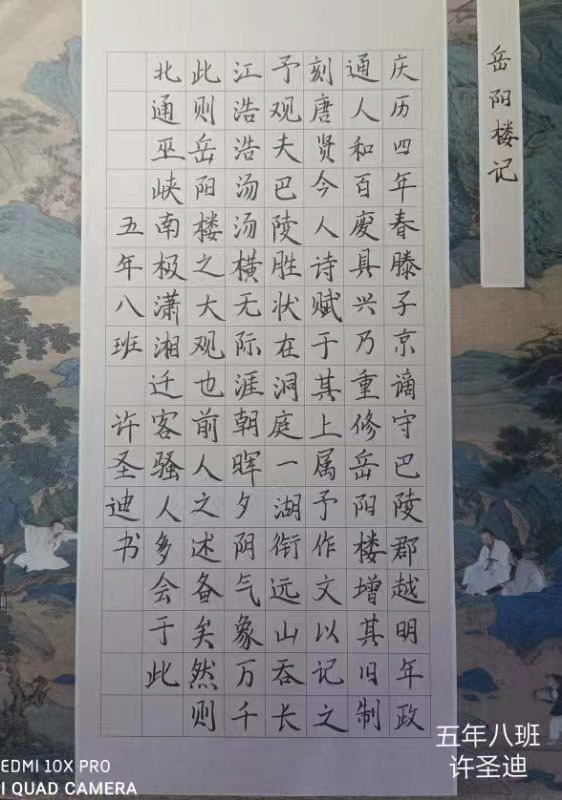 岳阳楼记
庆历四年春滕子京谪守巴陵郡越明年政
通人和百废具兴乃重修岳阳楼增其旧制
刻唐贤今人诗赋于其上属予作文以记之
予观夫巴陵胜状在洞庭一湖衔远山吞长
江浩浩汤汤横无际涯朝晖夕阴气象万千
此则岳阳楼之大观也前人之述备矣然则
北通巫峡南极潇湘迁客骚人多会于此
五年八班 许圣迪书
五年八班
许圣迪
EDMI 10X PRO
I QUAD CAMERA